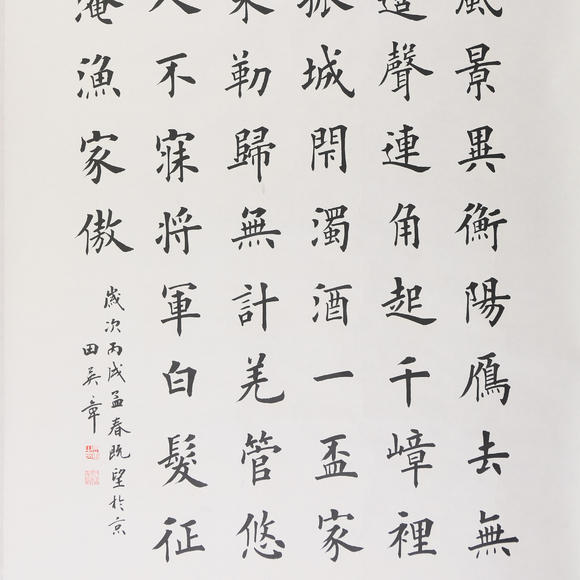 風景異衡陽鴈去無
邊聲連角起千嶂裡
孤城閇濁酒一盃家
未勒歸無計羌管悠
人不寐将軍白髮征
淹漁家傲
歲次丙戌孟春既望於京
田英章